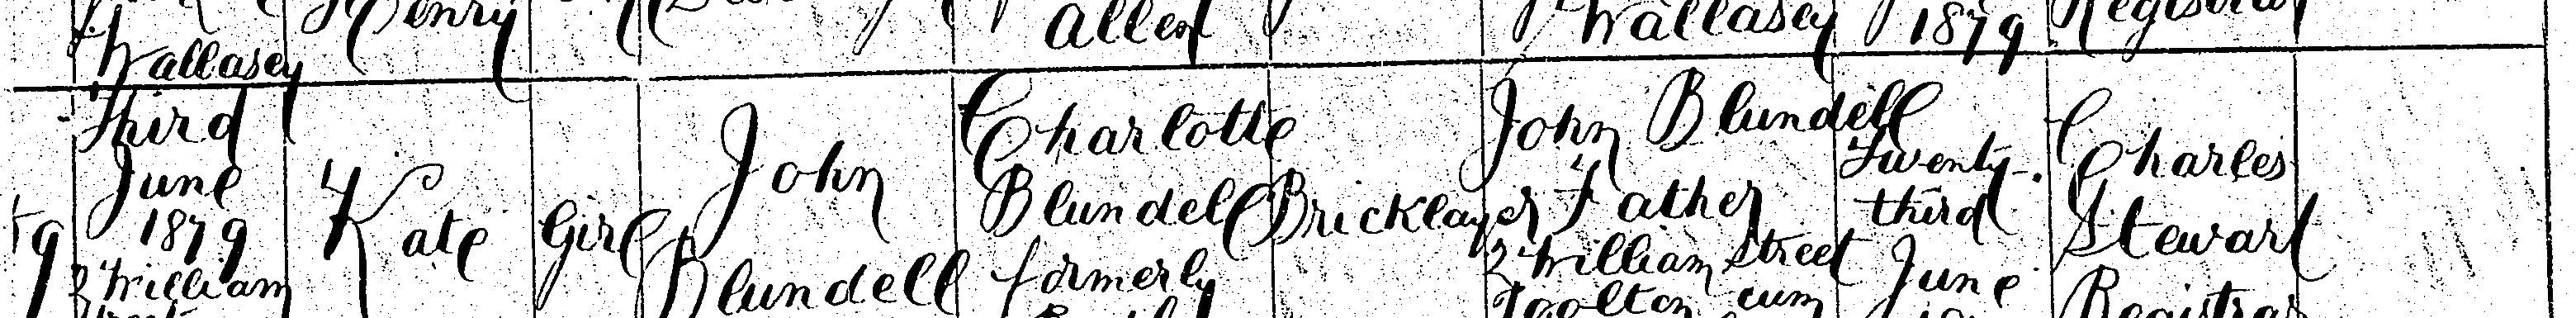 Henry
Allen
Wallasey
1879
Registrar
Wallasey
Third
June
1879
2 William
Kate
Girl
John
Blundell
Charlotte
Blundell
formerly
Bricklayer
John Blundell
Father
2 William Street
cum
Twenty-
third
June
Charles
Stewart
Registrar